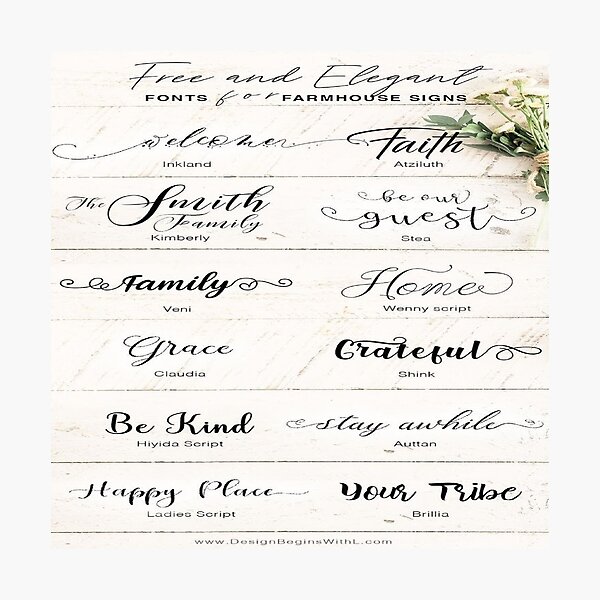 Free and Elegant
FONTS for FARMHOUSE SIGNS
welcome
Inkland
Faith
Atziluth
The Smith
Family
Kimberly
be our
guest
Stea
Family
Veni
Home
Wenny script
Grace
Claudia
Grateful
Shink
Be Kind
Hiyida Script
stay awhile
Auttan
Happy Place
Ladies Script
Your Tribe
Brillia
www.DesignBeginsWithL.com